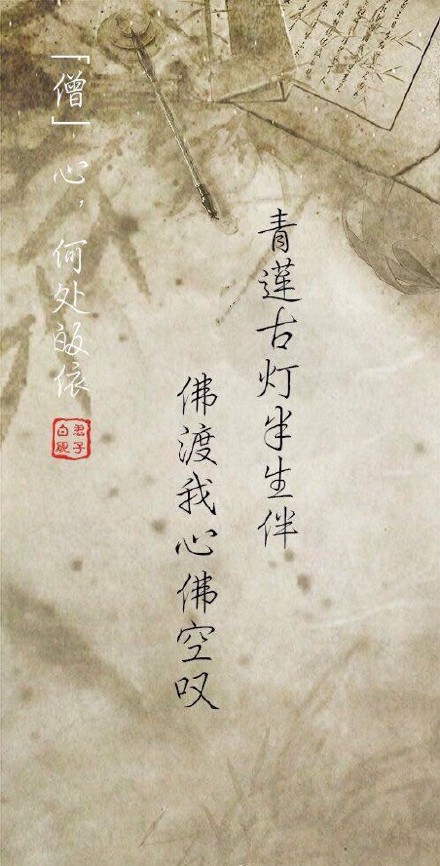 青莲古灯半生伴
佛渡我心佛空叹
「僧」心，何处皈依